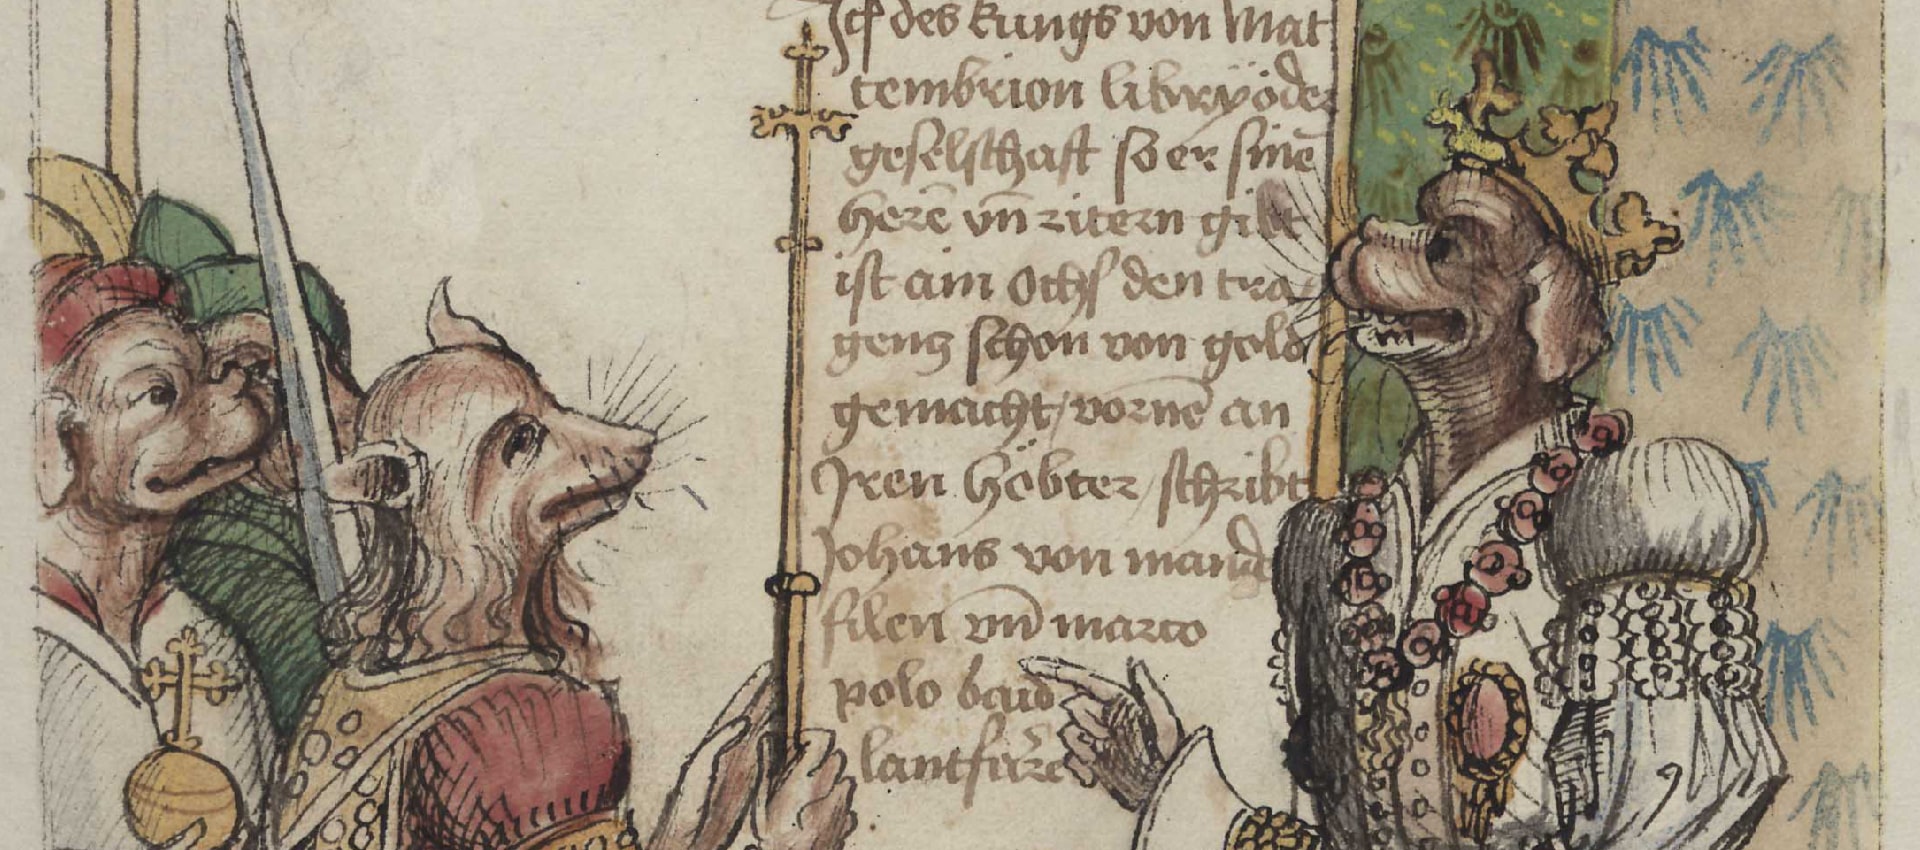 Jtẽ des kungs von Mat
tembrion librÿ oder
geselschaft so er sinẽ
herẽ vñ ritern gibt
ist ain Ochs den tra-
gentz schon von gold
gemacht / vornẽ an
Jren höbter / schribt
Johans von mande
filen vnd marco
polo baid
lantfarer